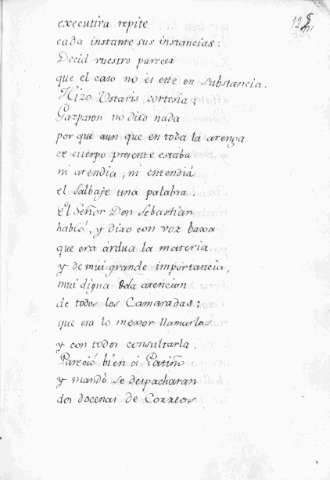 executiva repite
cada instante sus instancias:
Decid vuestro parecer
que el caso no es este en substancia.
Hizo Ustaris cortesia;
Gazpaton no dixo nada
porque aun que en toda la arenga
de cuerpo presente estaba
ni atendia, ni entendiá
el salbaje una palabra.
El Señor Don Sebastian
habló, y dixo con voz baxa
que era árdua la materia
y de mui grande importancia,
mui digna de la atencion
de todos los Camaradas;
que era lo mexor llamarlos
y con todos consultarla.
Pareció bien á Patiño
y mandó se despacharan
dos docenas de Correos